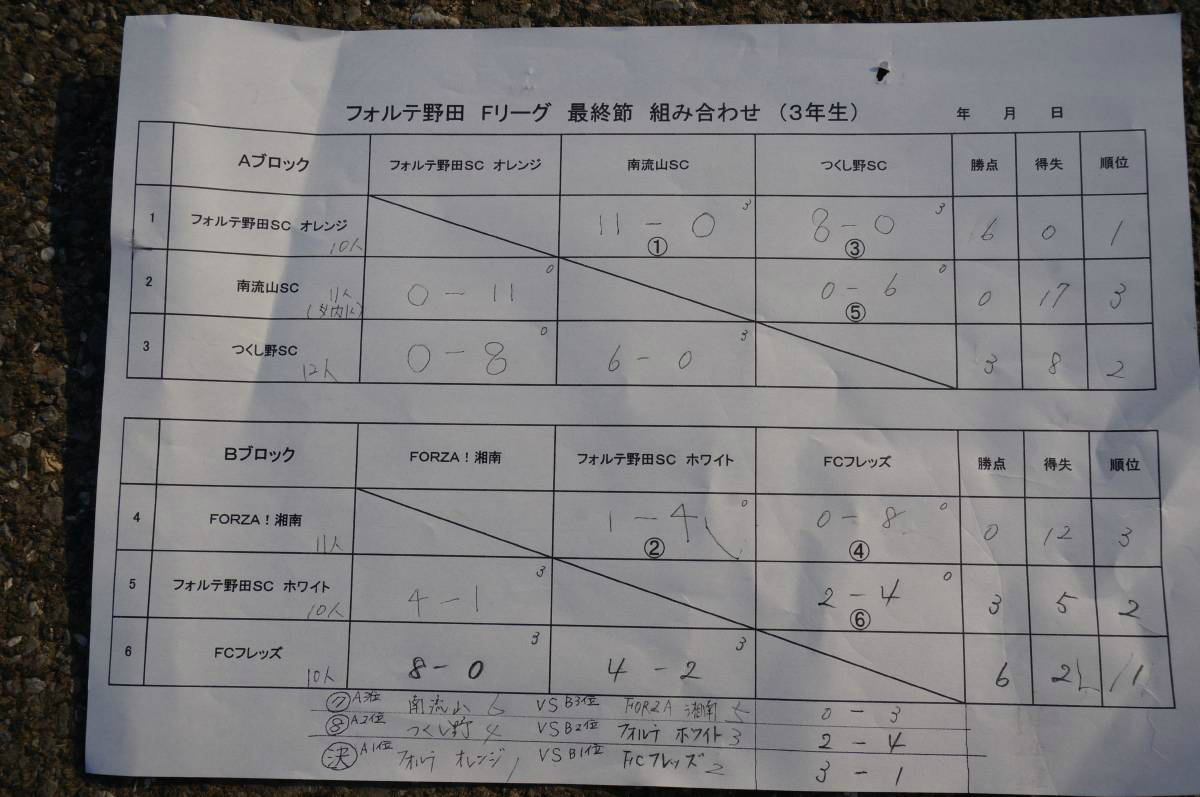 フォルテ野田 Fリーグ 最終節 組み合わせ (3年生) 年 月 日
Aブロック フォルテ野田SC オレンジ 南流山SC つくし野SC 勝点 得失 順位
1 フォルテ野田SC オレンジ 10人 11-0 3 ① 8-0 3 ③ 6 0 1
2 南流山SC 11人 0-11 0 0-6 0 ⑤ 0 17 3
3 つくし野SC 12人 0-8 0 6-0 3 3 8 2
Bブロック FORZA!湘南 フォルテ野田SC ホワイト FCフレッズ 勝点 得失 順位
4 FORZA!湘南 11人 1-4 0 ② 0-8 0 ④ 0 12 3
5 フォルテ野田SC ホワイト 10人 4-1 3 2-4 0 ⑥ 3 5 2
6 FCフレッズ 10人 8-0 3 4-2 3 6 2 1
⑦ A3位 南流山 6 VS B3位 FORZA 湘南 5 0-3
⑧ A2位 つくし野 4 VS B2位 フォルテ ホワイト 3 2-4
決 A1位 フォルテ オレンジ 1 VS B1位 FCフレッズ 2 3-1